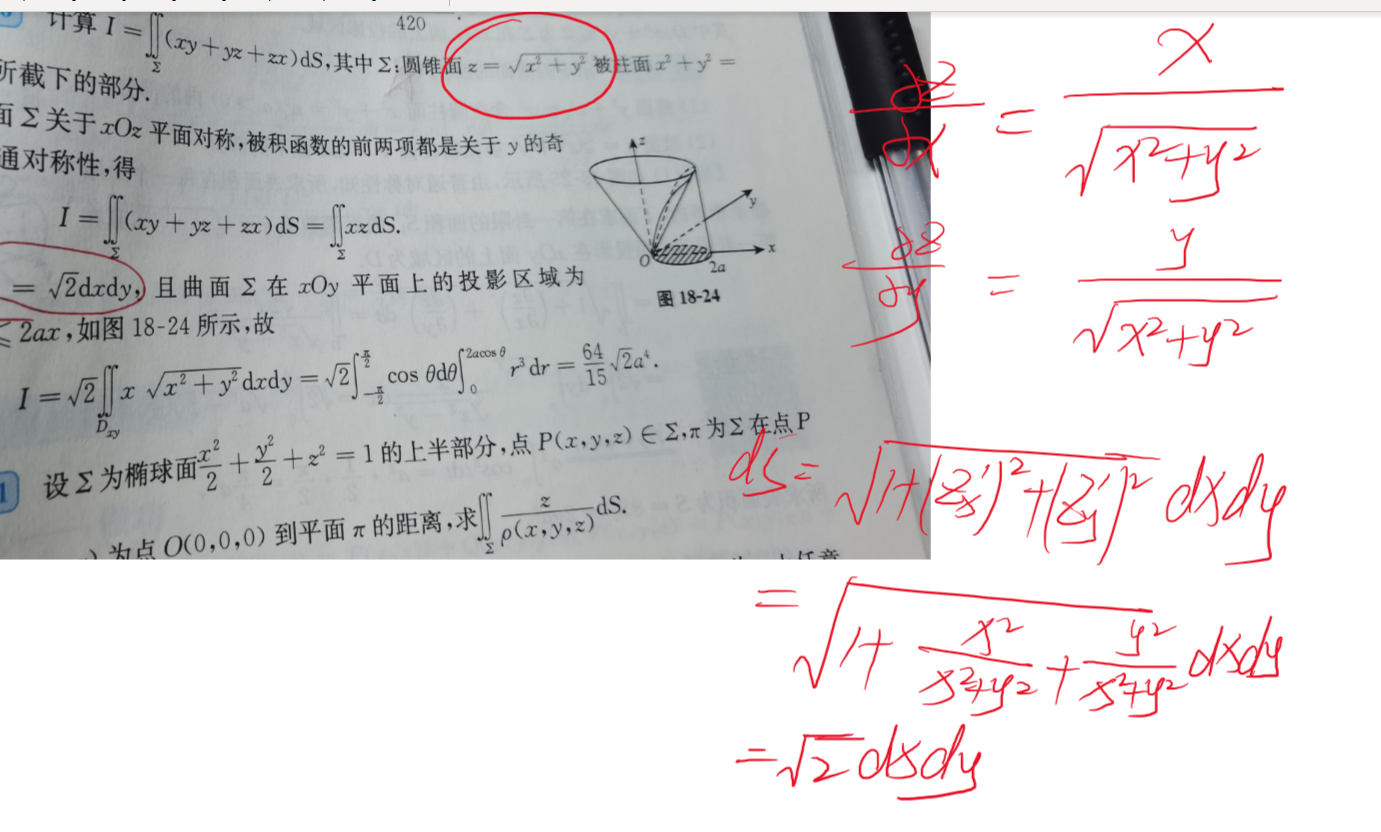 420
计算 I=∬_Σ(xy+yz+zx)dS,其中 Σ:圆锥面 z=√(x²+y²) 被柱面 x²+y²=
所截下的部分.
面 Σ 关于 xOz 平面对称,被积函数的前两项都是关于 y 的奇
通对称性,得
I=∬_Σ(xy+yz+zx)dS=∬_Σ xzdS.
=√2dxdy, 且曲面 Σ 在 xOy 平面上的投影区域为
≤2ax,如图 18-24 所示,故
z
y
x
O
2a
图 18-24
I=√2∬_{D_xy} x√(x²+y²)dxdy=√2∫_{-π/2}^{π/2}cos θdθ∫_0^{2acos θ}r³dr=64/15 √2a⁴.
1 设 Σ 为椭球面 x²/2+y²/2+z²=1 的上半部分,点 P(x,y,z)∈Σ,π 为 Σ 在点 P
)为点 O(0,0,0) 到平面 π 的距离,求∬_Σ z/ρ(x,y,z) dS.
任意
∂z/∂x = x/√(x²+y²)
∂z/∂y = y/√(x²+y²)
ds=√(1+(z'x)²+(z'y)²) dxdy
=√(1+x²/(x²+y²)+y²/(x²+y²)) dxdy
=√2 dxdy